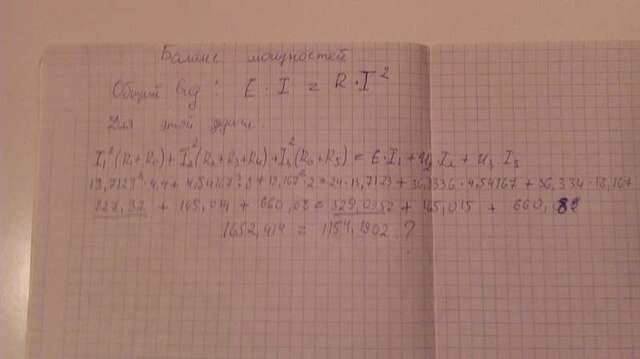 Баланс мощностей
Общий вид: E · I = R · I²
Для этой задачи
I₁²(R₁+R₀)+I₂²(R₂+R₃+R₄)+I₃²(R₆+R₅) = E·I₁ + U₂ I₂ + U₃ · I₃
13,7123² · 4,4 + 4,54167² · 8 + · 2 = 24 · 13,7123 + 36,3336 · 4,54167 + 36,334 ·
827,32 + 165,014 + 660,08 = 329,0952 + 165,015 + 660,
1652,414 = 1154,1902 ?